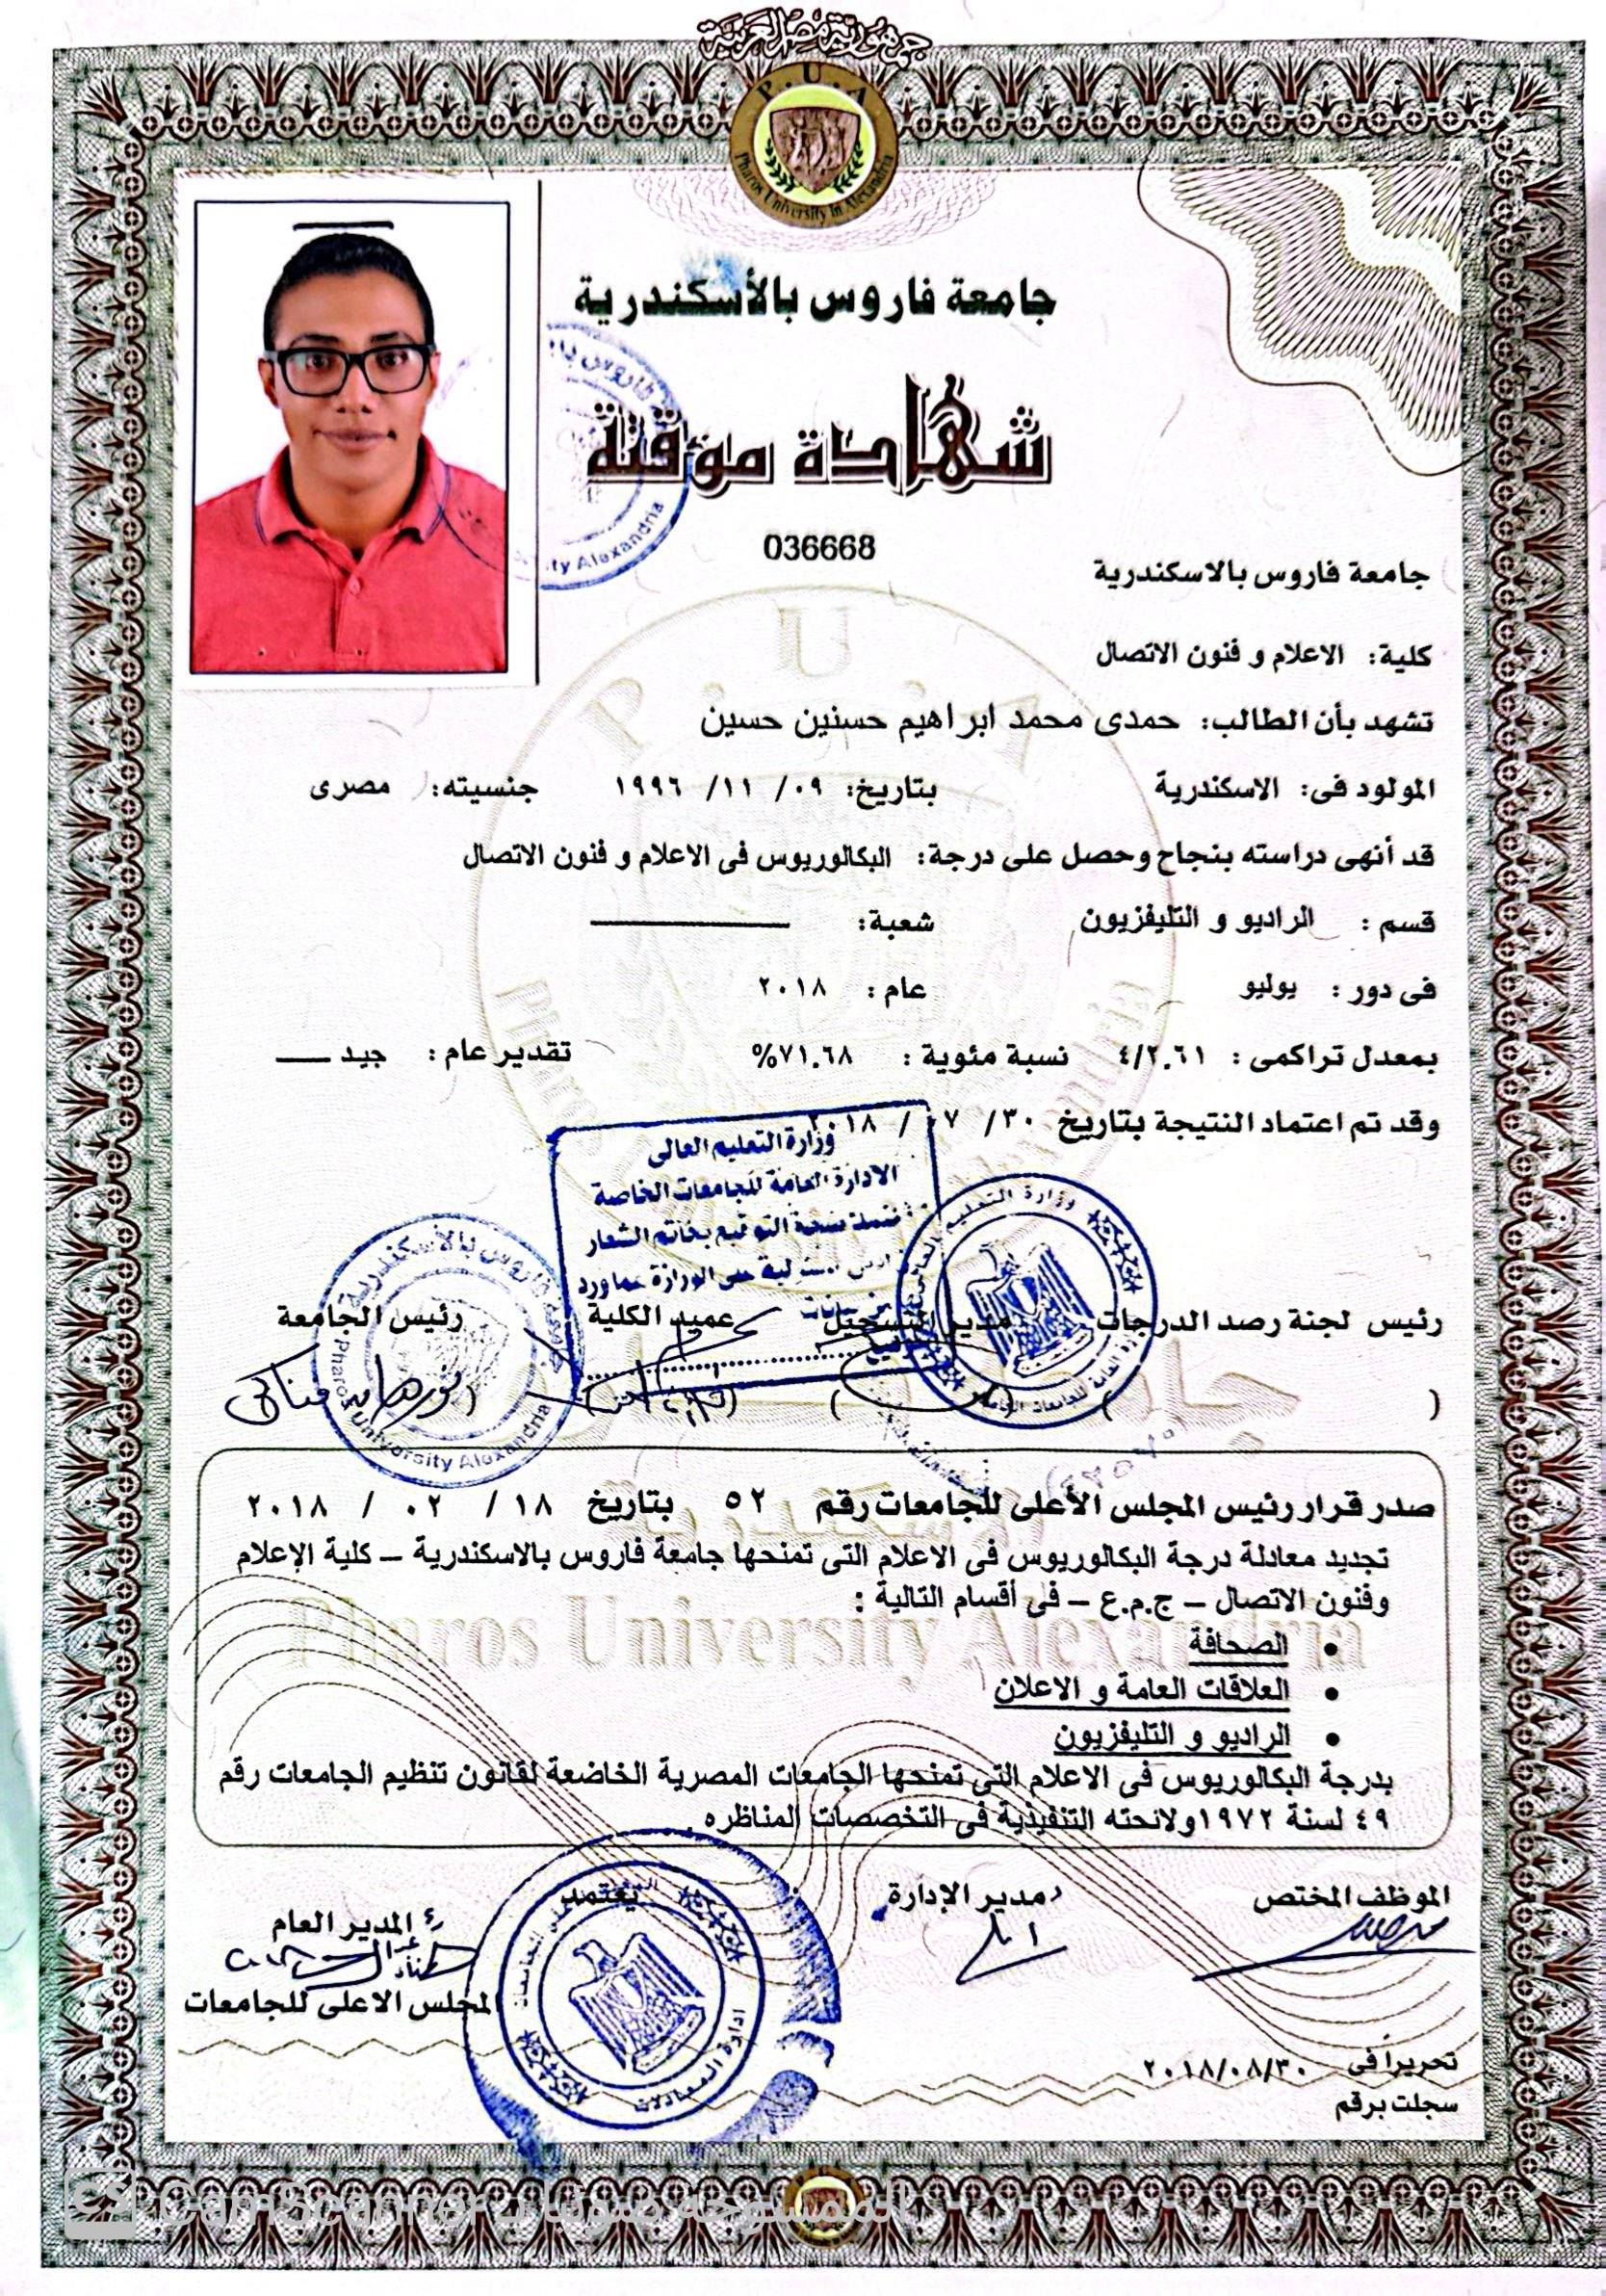 جمهورية مصر العربية
P.U.A
Pharos University in Alexandria
جامعة فاروس بالأسكندرية
شهادة مؤقتة
036668
جامعة فاروس بالاسكندرية
كلية: الاعلام و فنون الاتصال
تشهد بأن الطالب: حمدى محمد ابراهيم حسنين حسين
المولود فى: الاسكندرية بتاريخ: ٠٩ /١١ /١٩٩٦ جنسيته: مصرى
قد أنهى دراسته بنجاح وحصل على درجة: البكالوريوس فى الاعلام و فنون الاتصال
قسم : الراديو و التليفزيون شعبة:
فى دور : يوليو عام : ٢٠١٨
بمعدل تراكمى : ٤/٢.٦١ نسبة مئوية : ٧١.٦٨% تقدير عام : جيد
وقد تم اعتماد النتيجة بتاريخ ٣٠ /٠٧ /٢٠١٨
وزارة التعليم العالى
الادارة العامة للجامعات الخاصة
التوقيع بخاتم الشعار
على الوزارة عما ورد
رئيس لجنة رصد الدرجات مدير التسجيل عميد الكلية رئيس الجامعة
صدر قرار رئيس المجلس الأعلى للجامعات رقم ٥٢ بتاريخ ١٨ / ٠٢ / ٢٠١٨
تجديد معادلة درجة البكالوريوس فى الاعلام التى تمنحها جامعة فاروس بالاسكندرية – كلية الإعلام
وفنون الاتصال – ج.م.ع – فى أقسام التالية :
• الصحافة
• العلاقات العامة و الاعلان
• الراديو و التليفزيون
بدرجة البكالوريوس فى الاعلام التى تمنحها الجامعات المصرية الخاضعة لقانون تنظيم الجامعات رقم
٤٩ لسنة ١٩٧٢ ولائحته التنفيذية فى التخصصات المناظره .
الموظف المختص مدير الإدارة يعتمد المدير العام
المجلس الاعلى للجامعات
تحريرا فى ٢٠١٨/٠٨/٣٠
سجلت برقم
CS الممسوحة ضوئيا بـ CamScanner